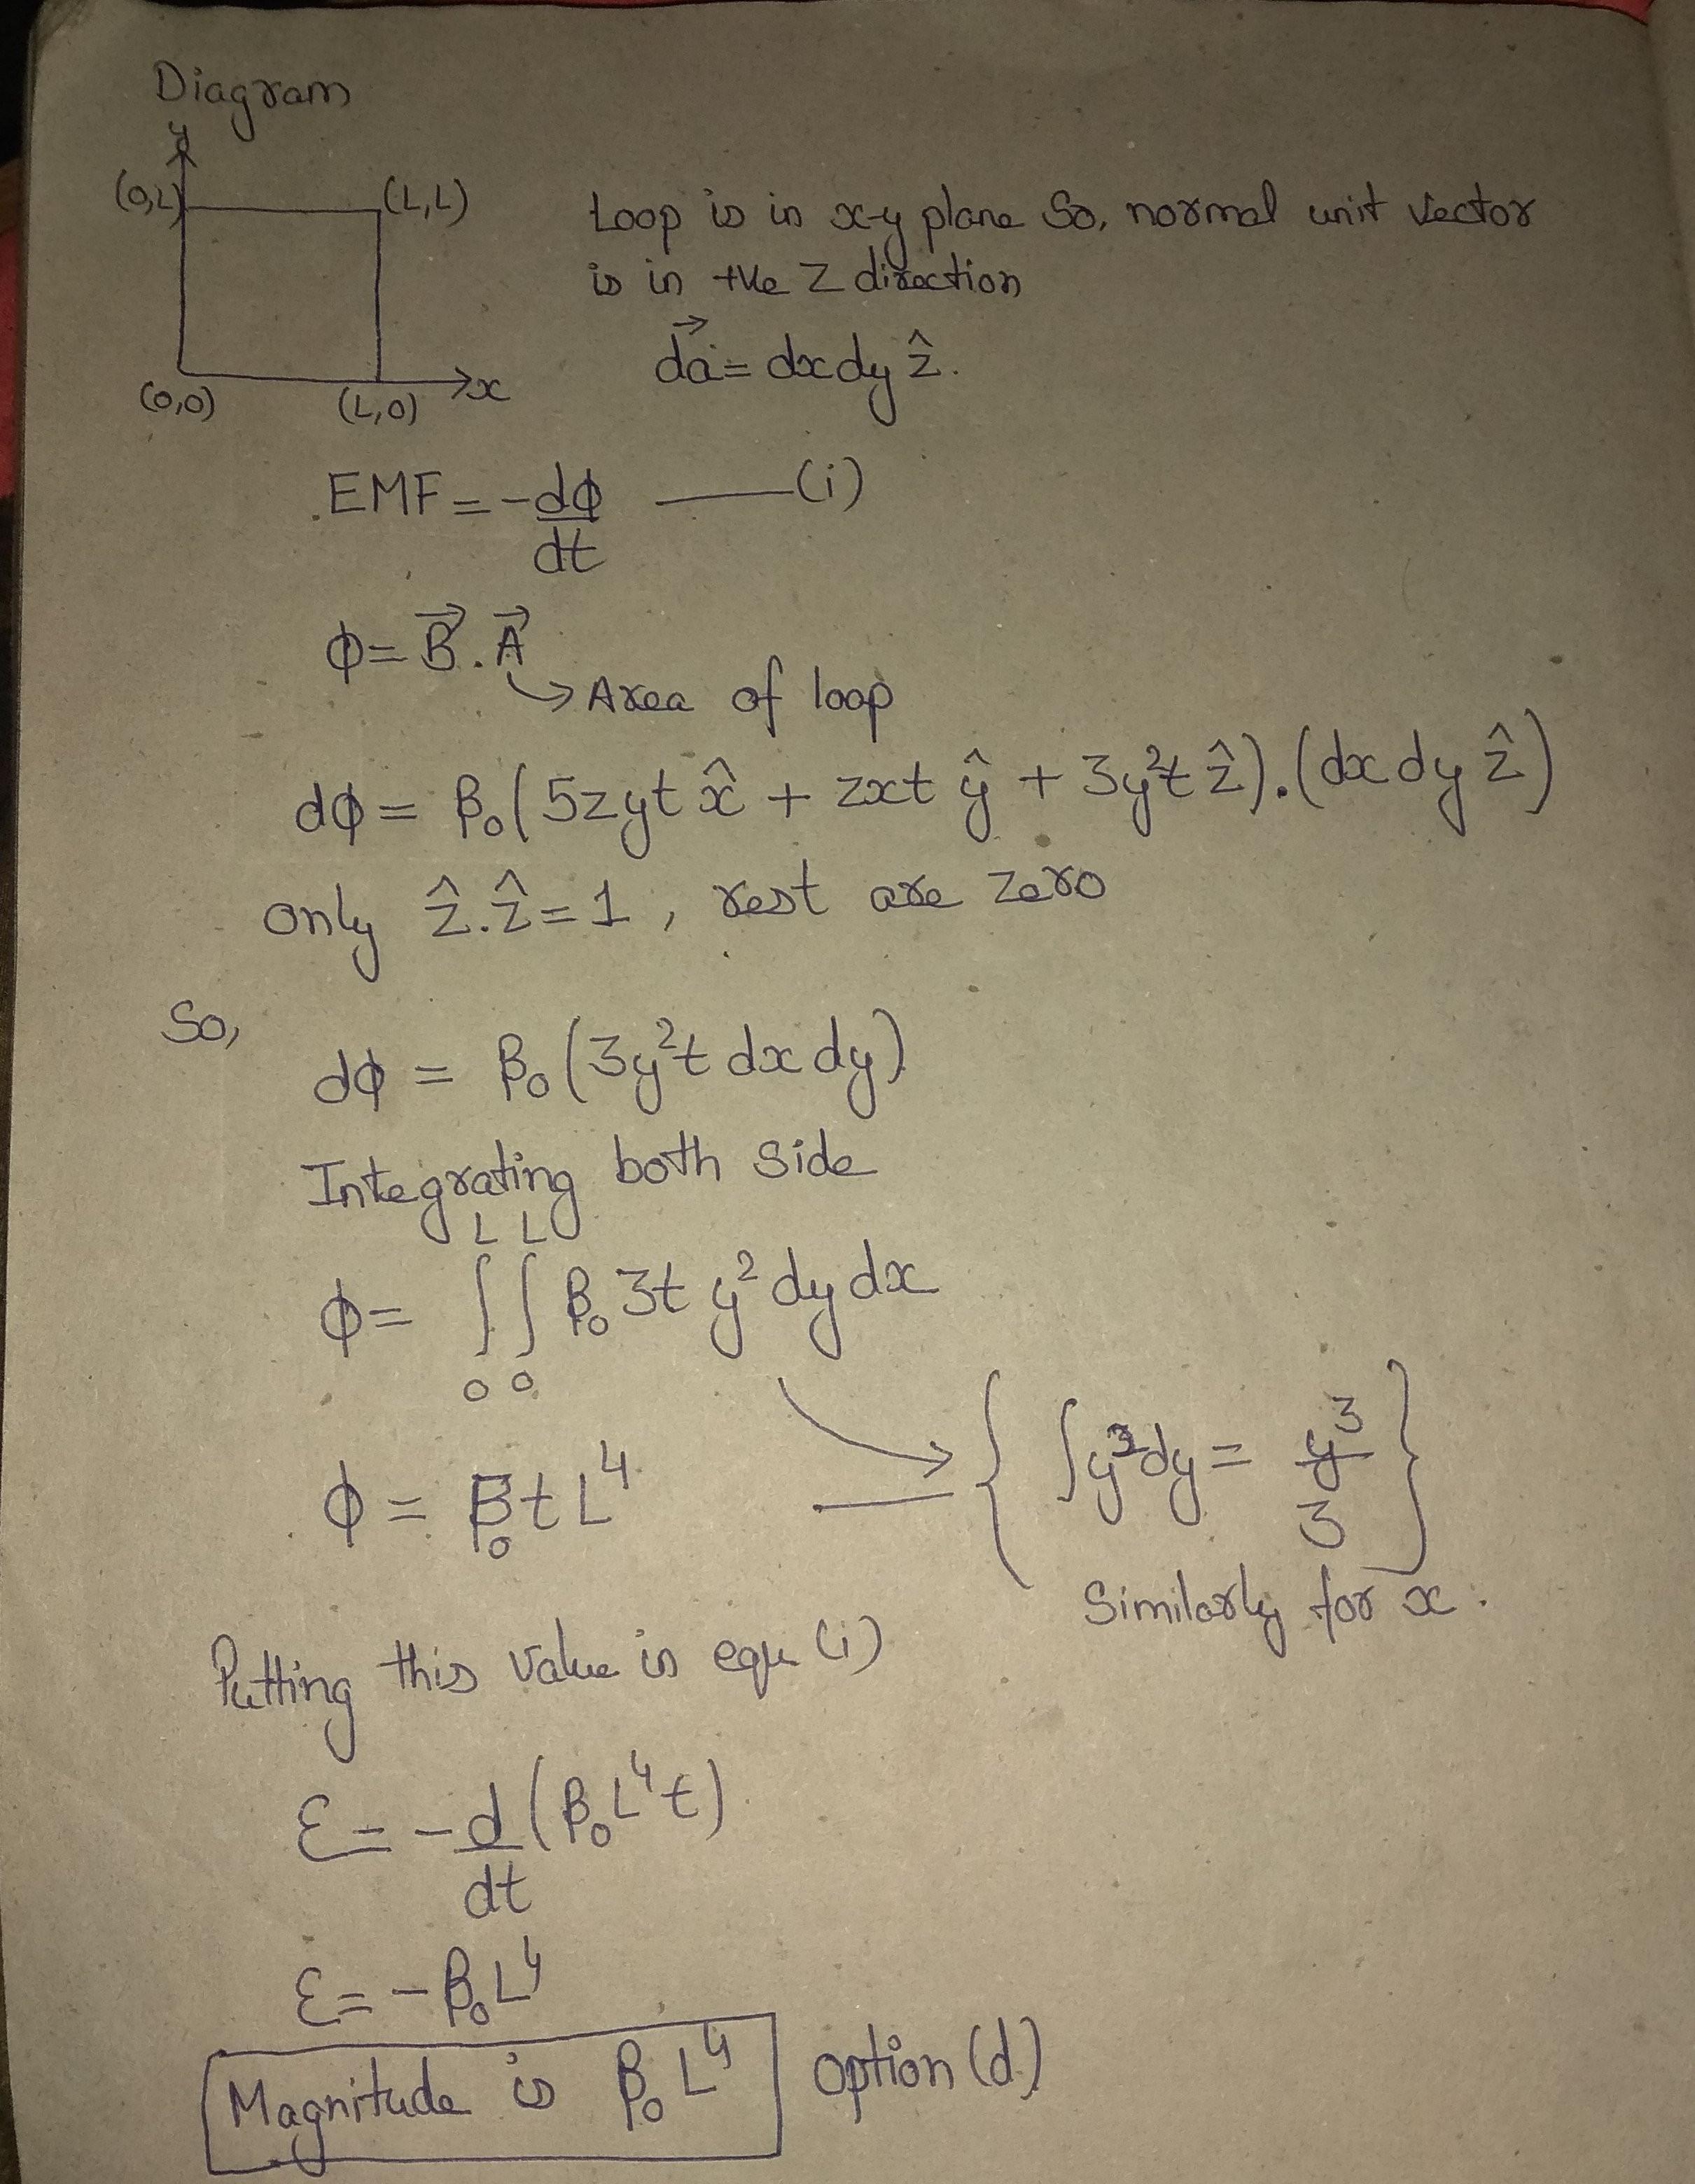 Diagram
y
(0,L) (L,L)
(0,0) (L,0) x
Loop is in x-y plane So, normal unit vector
is in +ve Z direction
da⃗ = dxdy ẑ.
EMF = -dϕ/dt —— (i)
ϕ = B⃗ . A⃗
→ Area of loop
dϕ = β₀(5zyt x̂ + zxt ŷ + 3y²t ẑ).(dx dy ẑ)
only ẑ.ẑ = 1, rest are zero
So,
dϕ = β₀(3y²t dx dy)
Integrating both side
ϕ = ∫₀ᴸ ∫₀ᴸ β₀ 3t y² dy dx
ϕ = β₀ t L⁴ → { ∫y²dy = y³/3 }
Similarly for x.
Putting this value in equ (i)
Ɛ = -d/dt (β₀L⁴t)
Ɛ = -β₀L⁴
Magnitude is β₀ L⁴ option (d)